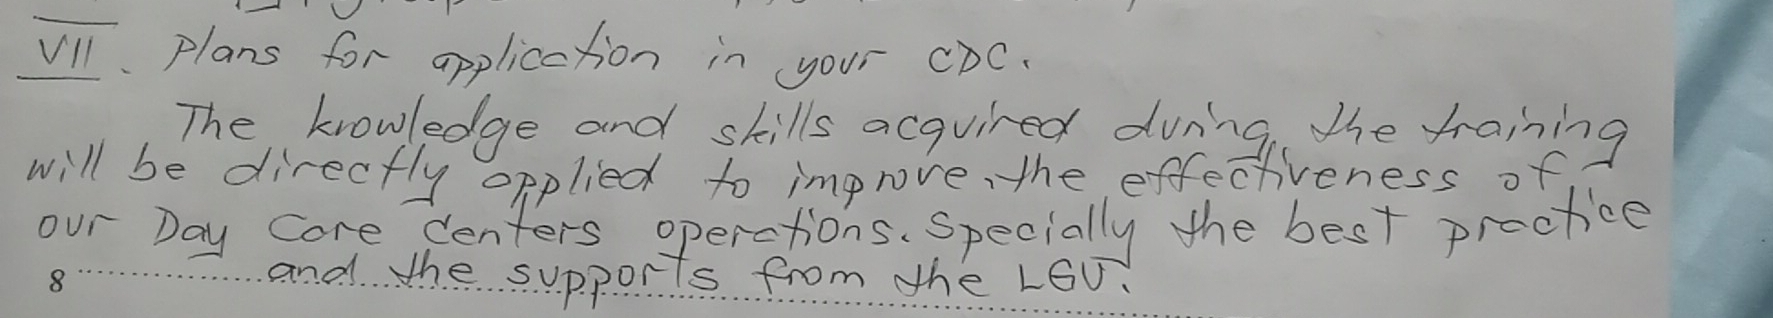 VII. Plans for application in your CDC.
The knowledge and skills acquired during the training
will be directly applied to improve the effectiveness of
our Day Care Centers operations. Specially the best practice
8 and the supports from the LGU.